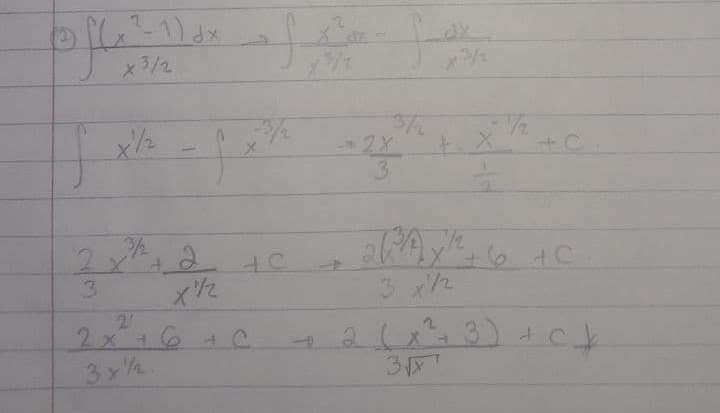 ② ∫ (x²-1) dx / x^3/2 → ∫ x² dx / x^3/2 - ∫ dx / x^3/2
∫ x^1/2 - ∫ x^-3/2 → 2x^3/2 / 3 + x^-1/2 / (1/2) + C
2/3 x^3/2 + 2 / x^1/2 + C → 2(x^3/2) x^1/2 + 6 / 3 x^1/2 + C
2x² + 6 / 3x^1/2 + C → 2(x² + 3) / 3√x + C